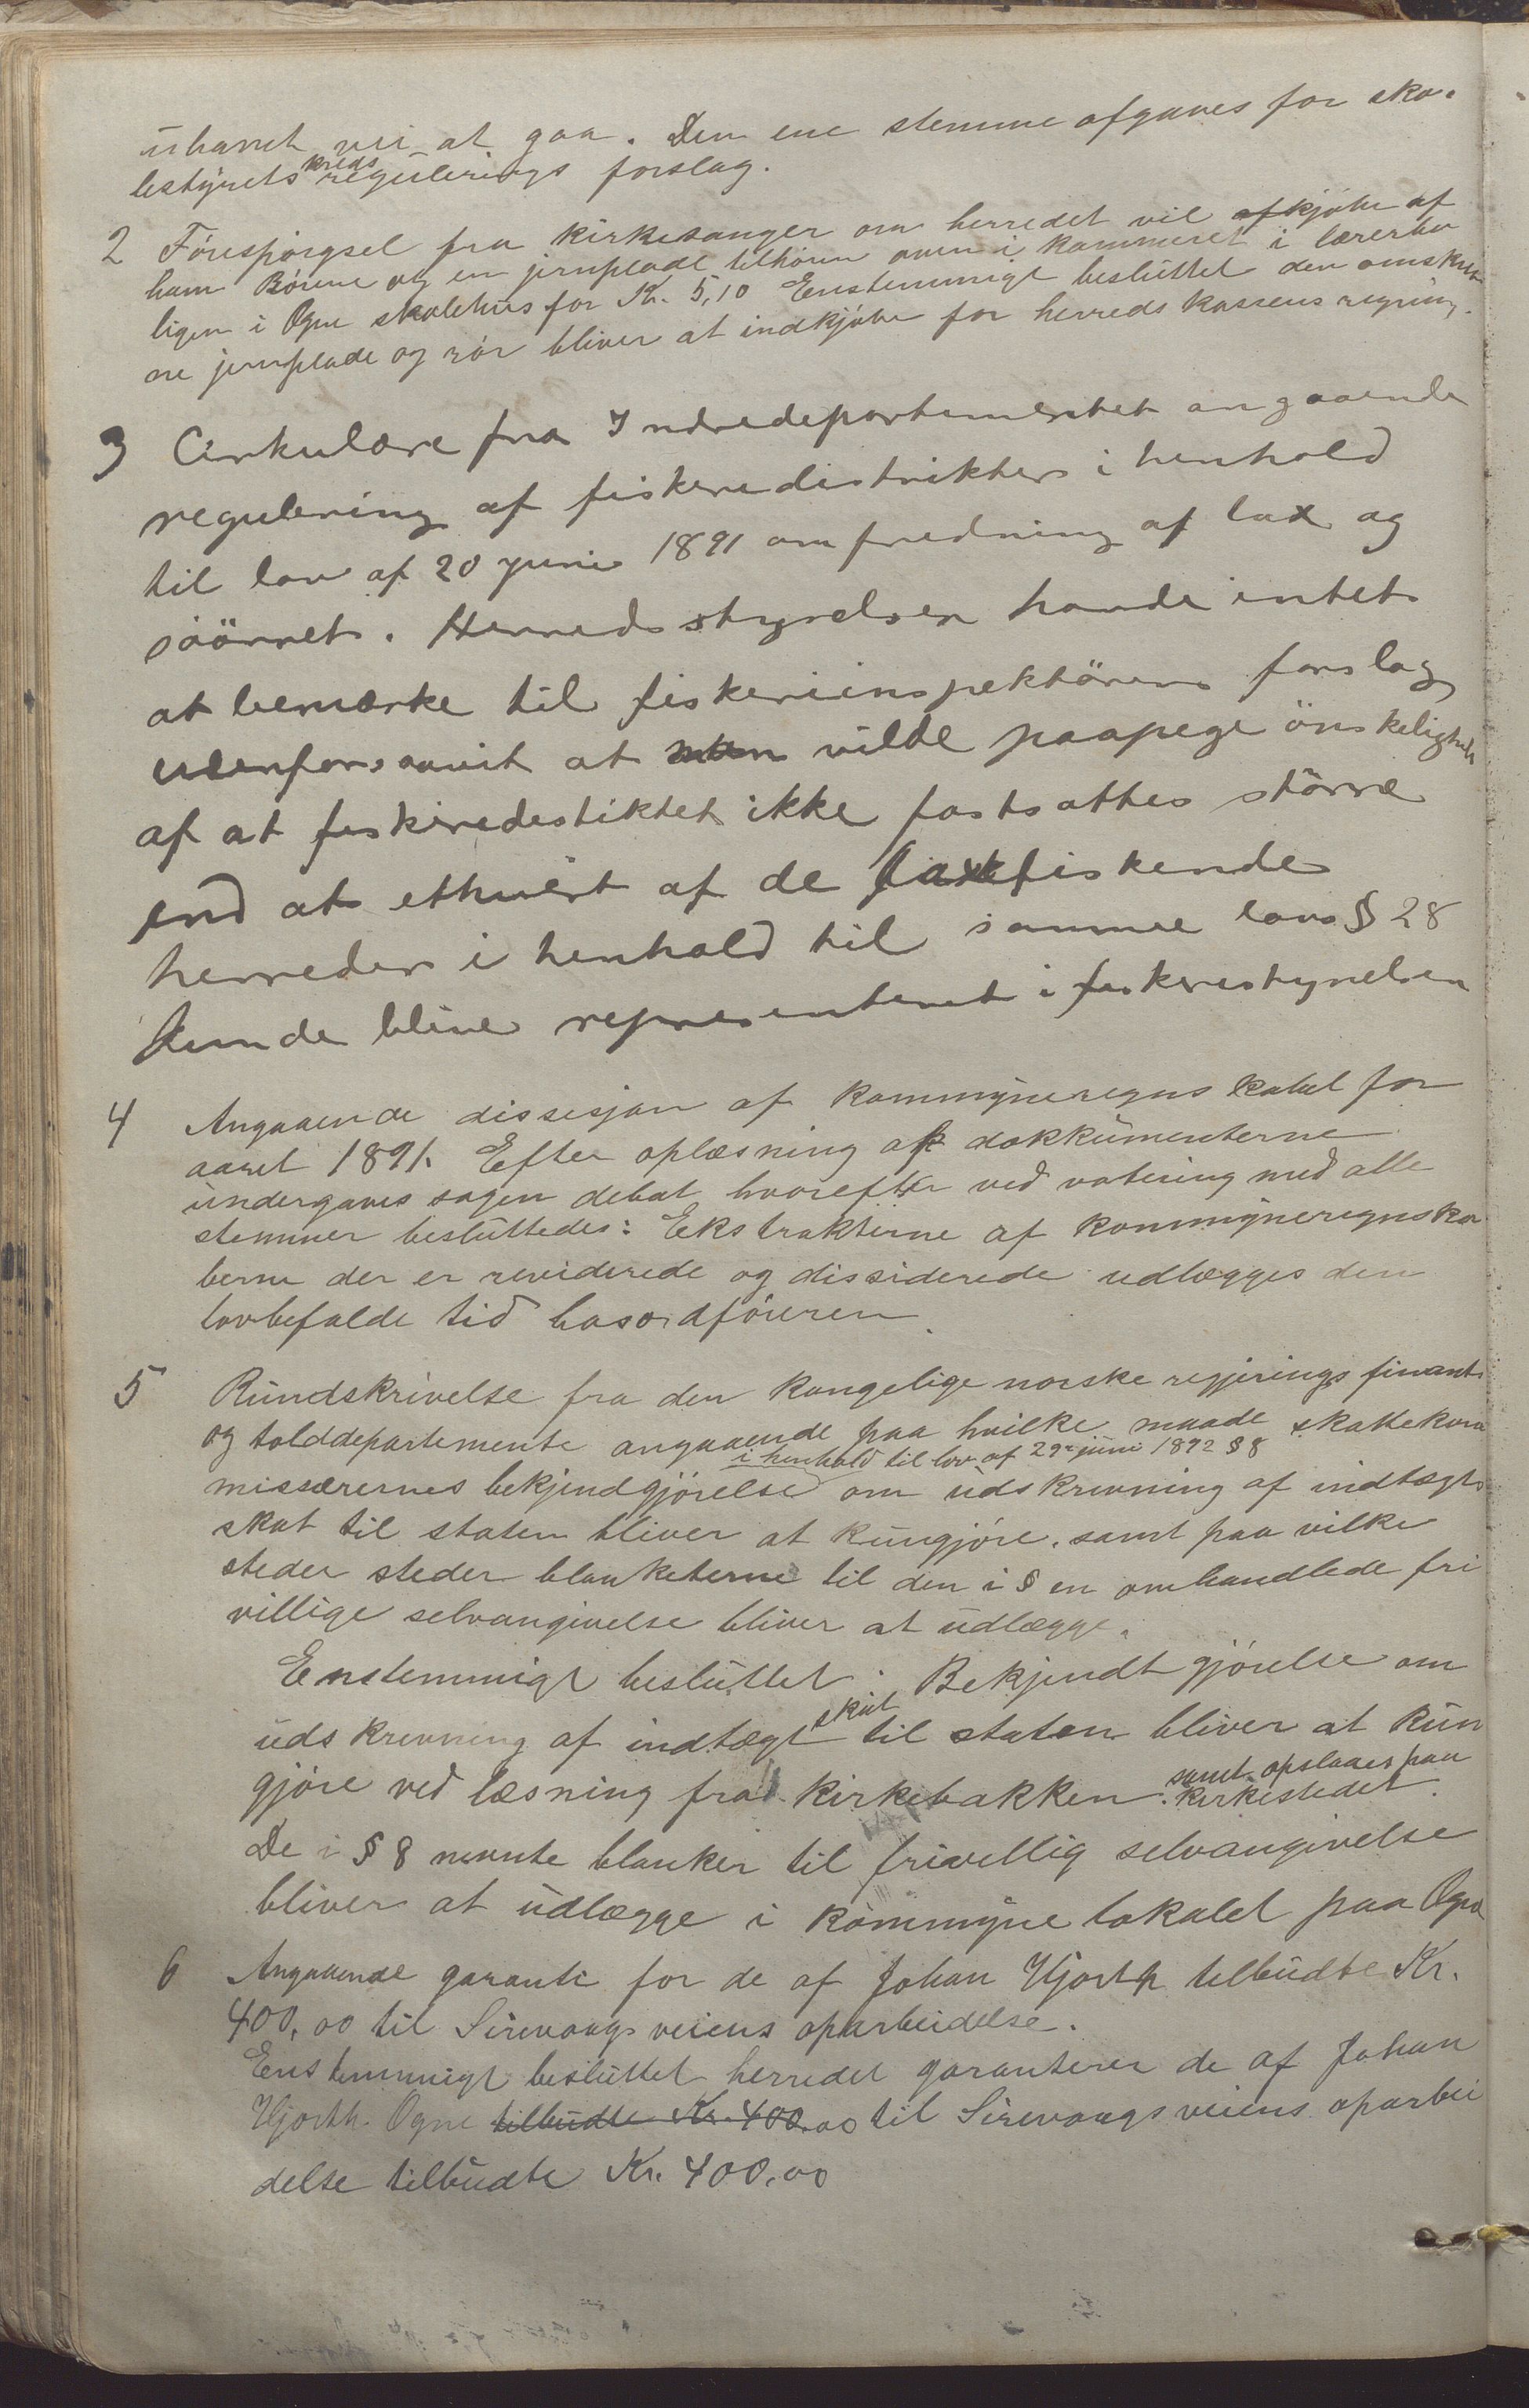 ubanet vei at gaa. Den ene stemme afgaves for sko-
bestyrets kreds regulerings forslag.
2 Forespørgsel fra kirkesanger om herredet vil afkjøbe af
ham Rörene og en jernplade tilhören ovnen i kammeret i lærerbo
ligen i Ogne skolehus for Kr. 5,10 Enstemmigt besluttet den omskrev
ne jernplade og rör bliver at indkjöbe for herreds kassens regning.
3 Cirkulære fra Indredepartementet angaaende
regulering af fiskeredistrikter i henhold
til lov af 20 juni 1891 om fredning af lax og
sjöörret. Herredsstyrelsen havde intet
at bemærke til fiskeriinspektörens forslag
udenforsaavit at man vilde paapege önskelighed
af at fiskeredestiktet ikke fastsattes större
end at ethvert af de laxefiskende
herreder i henhold til samme lovs § 28
kunde blive representeret i fiskerestyrelsen
4 Angaaende dissesjon af kommyneregnskabet for
aaret 1891. Efter oplæsning af dokkumenterne
undergaves sagen debat hvorefter ved votering med alle
stemmer besluttedes: Ekstrakterne af kommyneregnska
berne der er reviderede og dissiderede udlægges den
lovbefalde tid hos ordföreren.
5 Rundskrivelse fra den kongelige norske regjerings finants
og tolddepartemente angaaende paa hvilke maade skattekom
i henhold til lov af 29 juni 1892 § 8
missærernes bekjendgjörelse om udskrevning af indtægts
skat til staten bliver at kungjöre, samt paa vilke
steder steder blanketerne til den i § en omhandlede fri
villige selvangivelse bliver at udlægge.
Enstemmigt besluttet: Bekjendtgjörelse om
udskrevning af indtægt skat til staten bliver at kun
gjöre ved læsning fra kirkebakken. samt opslaaes paa kirkestedet.
De i § 8 nevnte blanker til frivellig selvangivelse
bliver at udlægge i kommyne lokalet paa Ogne
6 Angaaende garanti for de af Johan Hjorth tilbudte Kr.
400,00 til Sirevaagsveiens oparbeidelse.
Enstemmigt besluttet herredet garanterer de af Johan
Hjorth Ogne tilbudte Kr. 400,00 til Sirevaagsveiens oparbei
delse tilbudte Kr. 400,00